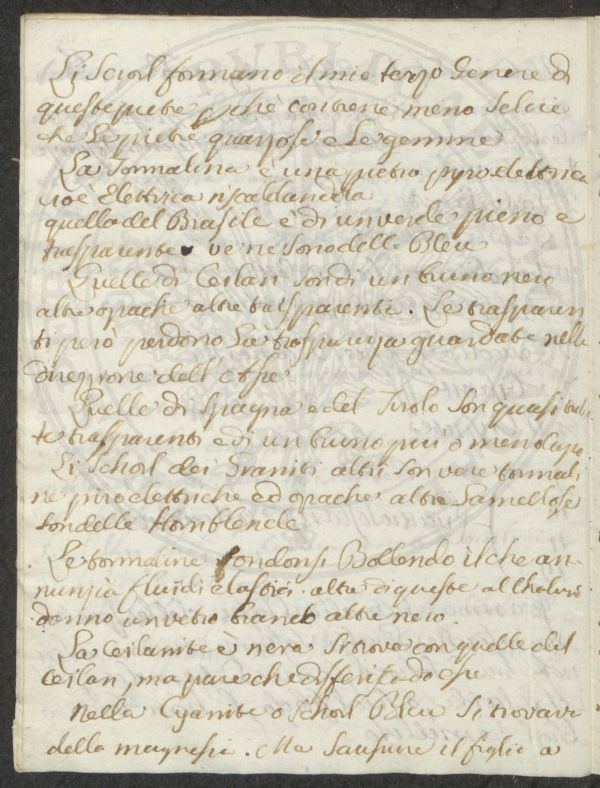 Li Sciorl formano il mio terzo Genere di
queste pietre pche contiene meno Selcie
che le pietre quarzose e le gemme
La Tormalina è una pietra pyroelettrica
cioè Elettrica riscaldandola
quella del Brasile è di un verde pieno e
trasparente ve ne sono delle Bleu
Quelle di Ceilan son di un bruno nero
altre opache altre trasparenti. Le trasparen
ti però perdono la trasparenza guardate nella
direzzione dell' Asse
Quelle di Spagna e del Tirolo son quasi tut
te trasparenti e di un bruno più o meno cupo
Li Schorl dei Graniti altri son vere tormali
ne piroelettriche ed opache altre Lamellose
son delle Hornblende
Le tormaline fondonsi Bollendo il che an
nunzia fluidi elastici. altre di queste al
danno un vetro bianco altre nero.
La Ceilanite è nera Si trova con quelle del
Ceilan, ma pare che differisca da esse
Nella Cyanite o Schorl Bleu Si trovava
della magnesia. Ma Sausure il figlio a